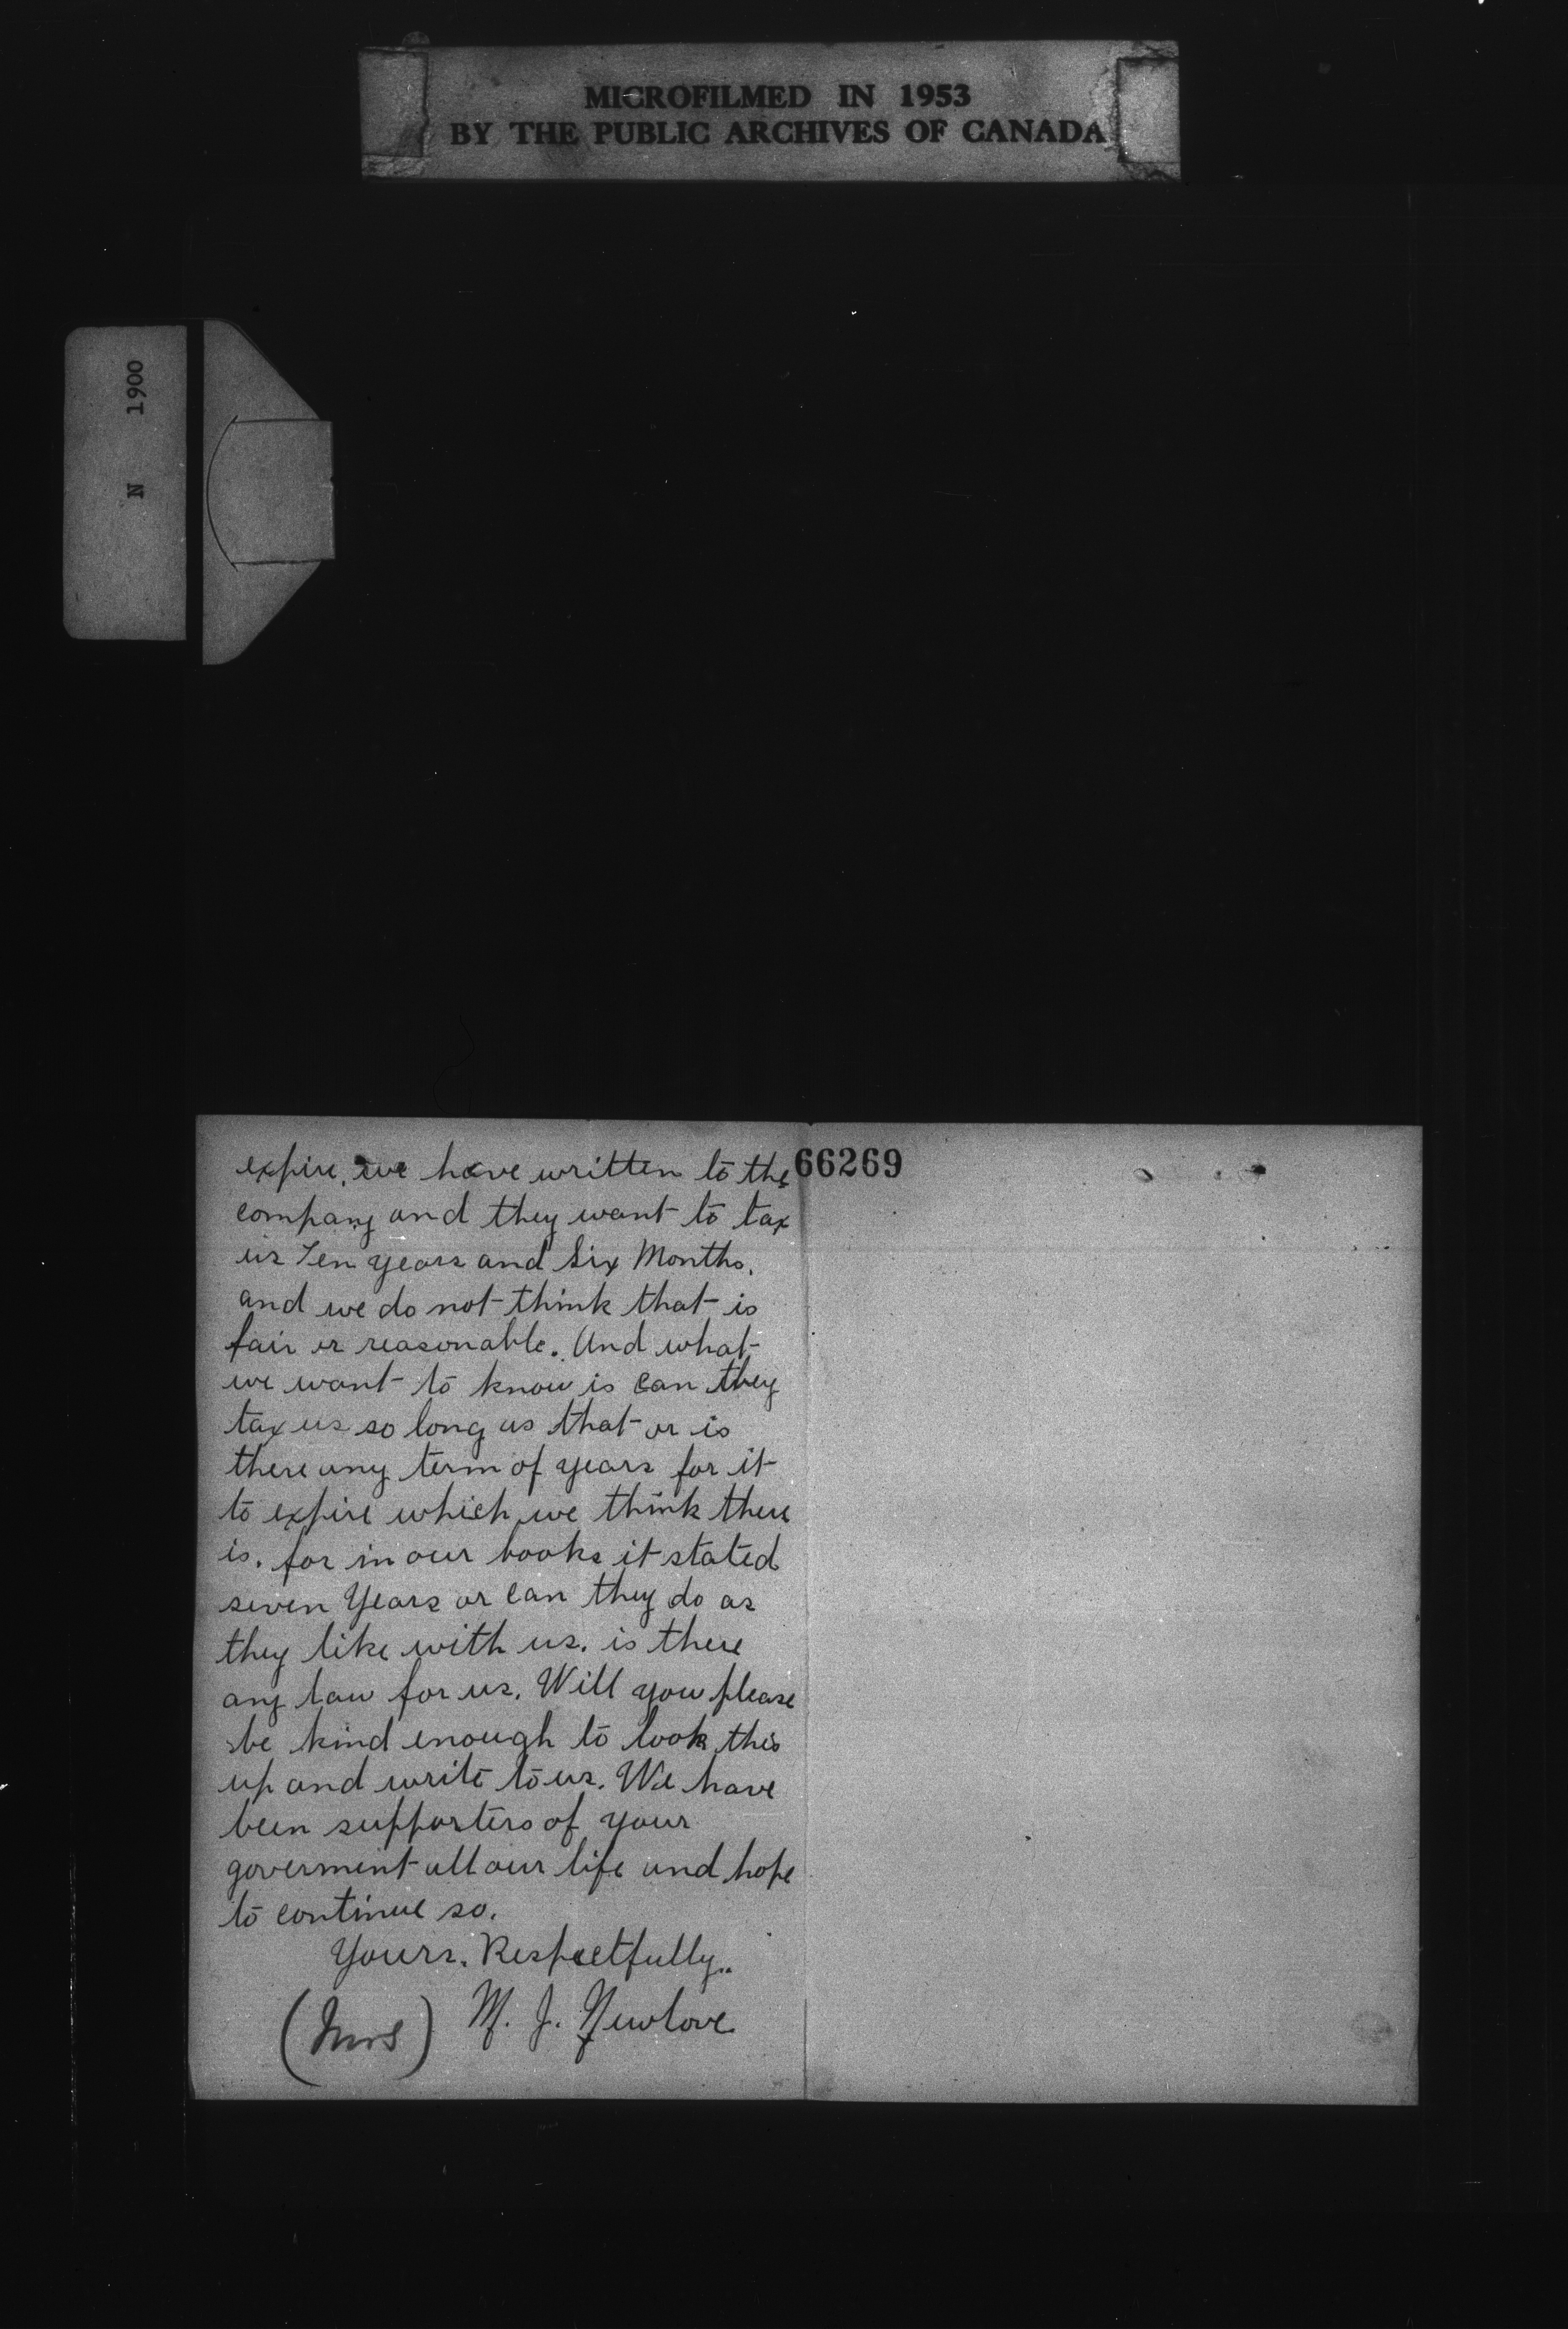 MICROFILMED IN 1953
BY THE PUBLIC ARCHIVES OF CANADA
N 1900
66269
expire. we have written to the
company and they want to tax
us Ten years and Six Months.
and we do not think that is
fair or reasonable. And what
we want to know is can they
tax us so long as that or is
there any term of years for it
to expire which we think there
is. for in our books it stated
seven Years or can they do as
they like with us. is there
any law for us. Will you please
be kind enough to look this
up and write to us. We have
been supporters of your
goverment all our life and hope
to continue so.
Yours. Respectfully..
(Mrs) M. J. Newlove